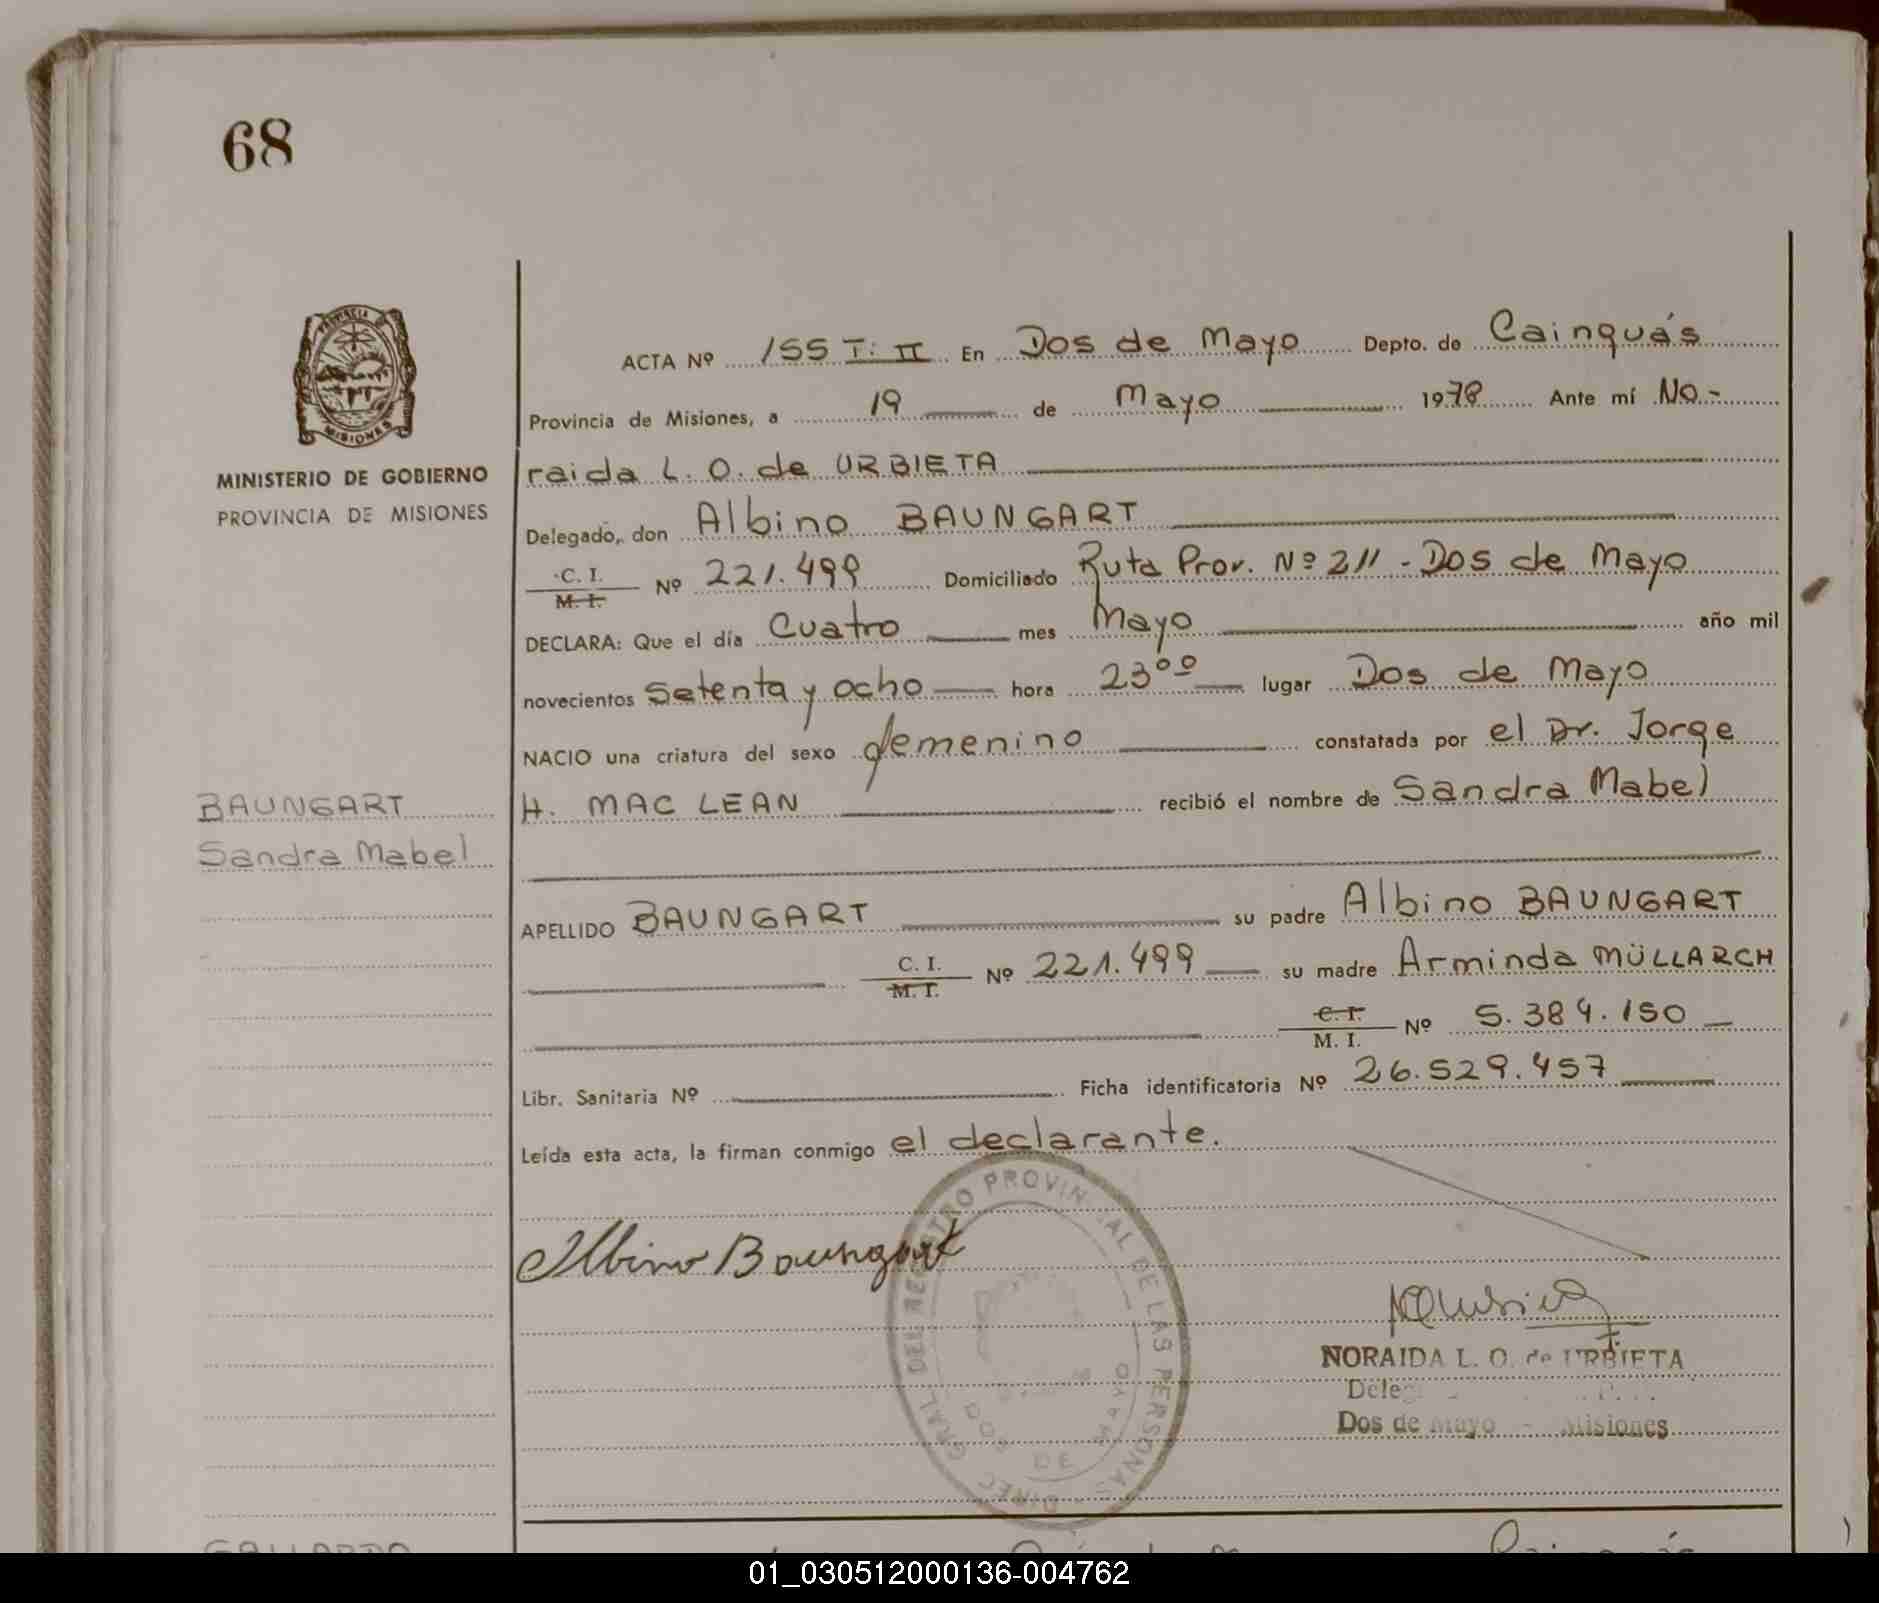 68
PROVINCIA DE
MISIONES
MINISTERIO DE GOBIERNO
PROVINCIA DE MISIONES
BAUNGART
Sandra Mabel
ACTA Nº 155 T: II En Dos de Mayo Depto. de Cainguás
Provincia de Misiones, a 19 de Mayo 1978 Ante mí No.-
raida L. O. de URBIETA
Delegado, don Albino BAUNGART
C. I.
M. I. Nº 221.499 Domiciliado Ruta Prov. Nº 211 - Dos de Mayo
DECLARA: Que el día Cuatro mes Mayo año mil
novecientos setenta y ocho hora 23ºº lugar Dos de Mayo
NACIO una criatura del sexo femenino constatada por el Dr. Jorge
H. MAC LEAN recibió el nombre de Sandra Mabel
APELLIDO BAUNGART su padre Albino BAUNGART
C. I.
M. I. Nº 221.499 su madre Arminda MÜLLARCH
C. I.
M. I. Nº 5.384.150
Libr. Sanitaria Nº Ficha identificatoria Nº 26.529.457
Leída esta acta, la firman conmigo el declarante.
Albino Baungart
DIREC GRAL DEL REGISTRO PROVINCIAL DE LAS PERSONAS
DOS DE MAYO
NORAIDA L. O. de URBIETA
Dos de Mayo - Misiones
GALLARDO
01_030512000136-004762